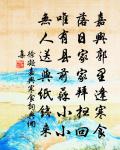 嘉興郭里逢寒食
落日家家拜掃回
唯有縣前蘇小小
無人送與紙錢來
徐凝嘉興寒食